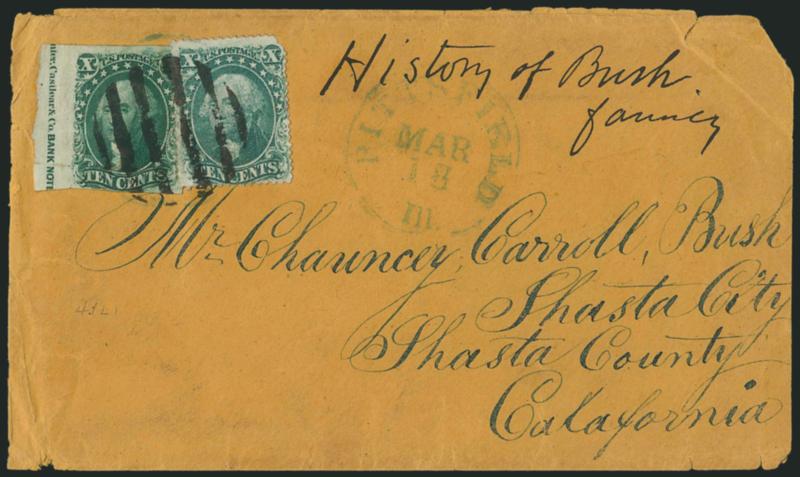 U.S. POSTAGE
X X
TEN CENTS
U.S. POSTAGE
X X
TEN CENTS
Casilear & Co. BANK NOTE
History of Bush
family
PITTSFIELD
MAR
18
Ill.
Mr. Chauncey, Carroll, Bush
Shasta City
Shasta County
Calafornia